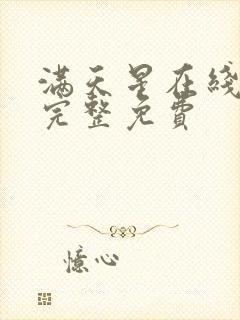 满天星在线
完整免費
憶心